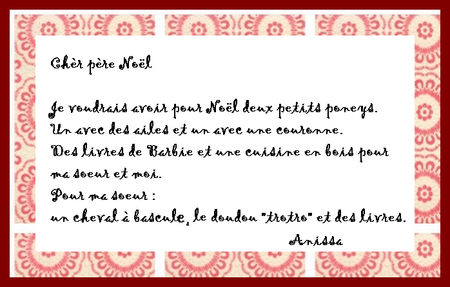 Chèr père Noël
Je voudrais avoir pour Noël deux petits poneys.
Un avec des ailes et un avec une couronne.
Des livres de Barbie et une cuisine en bois pour
ma soeur et moi.
Pour ma soeur :
un cheval à bascule, le doudou "trotro" et des livres.
Anissa